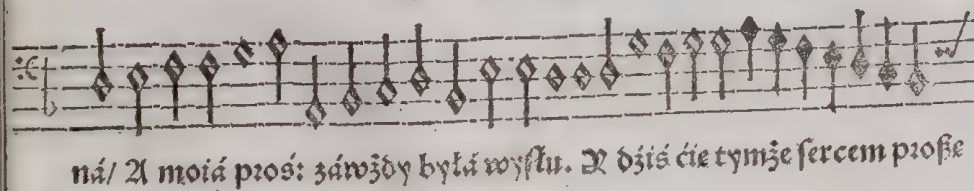 ná/ A moiá proś: záwżdy byłá wysłu. Y dźiś ćie tymże sercem prosze